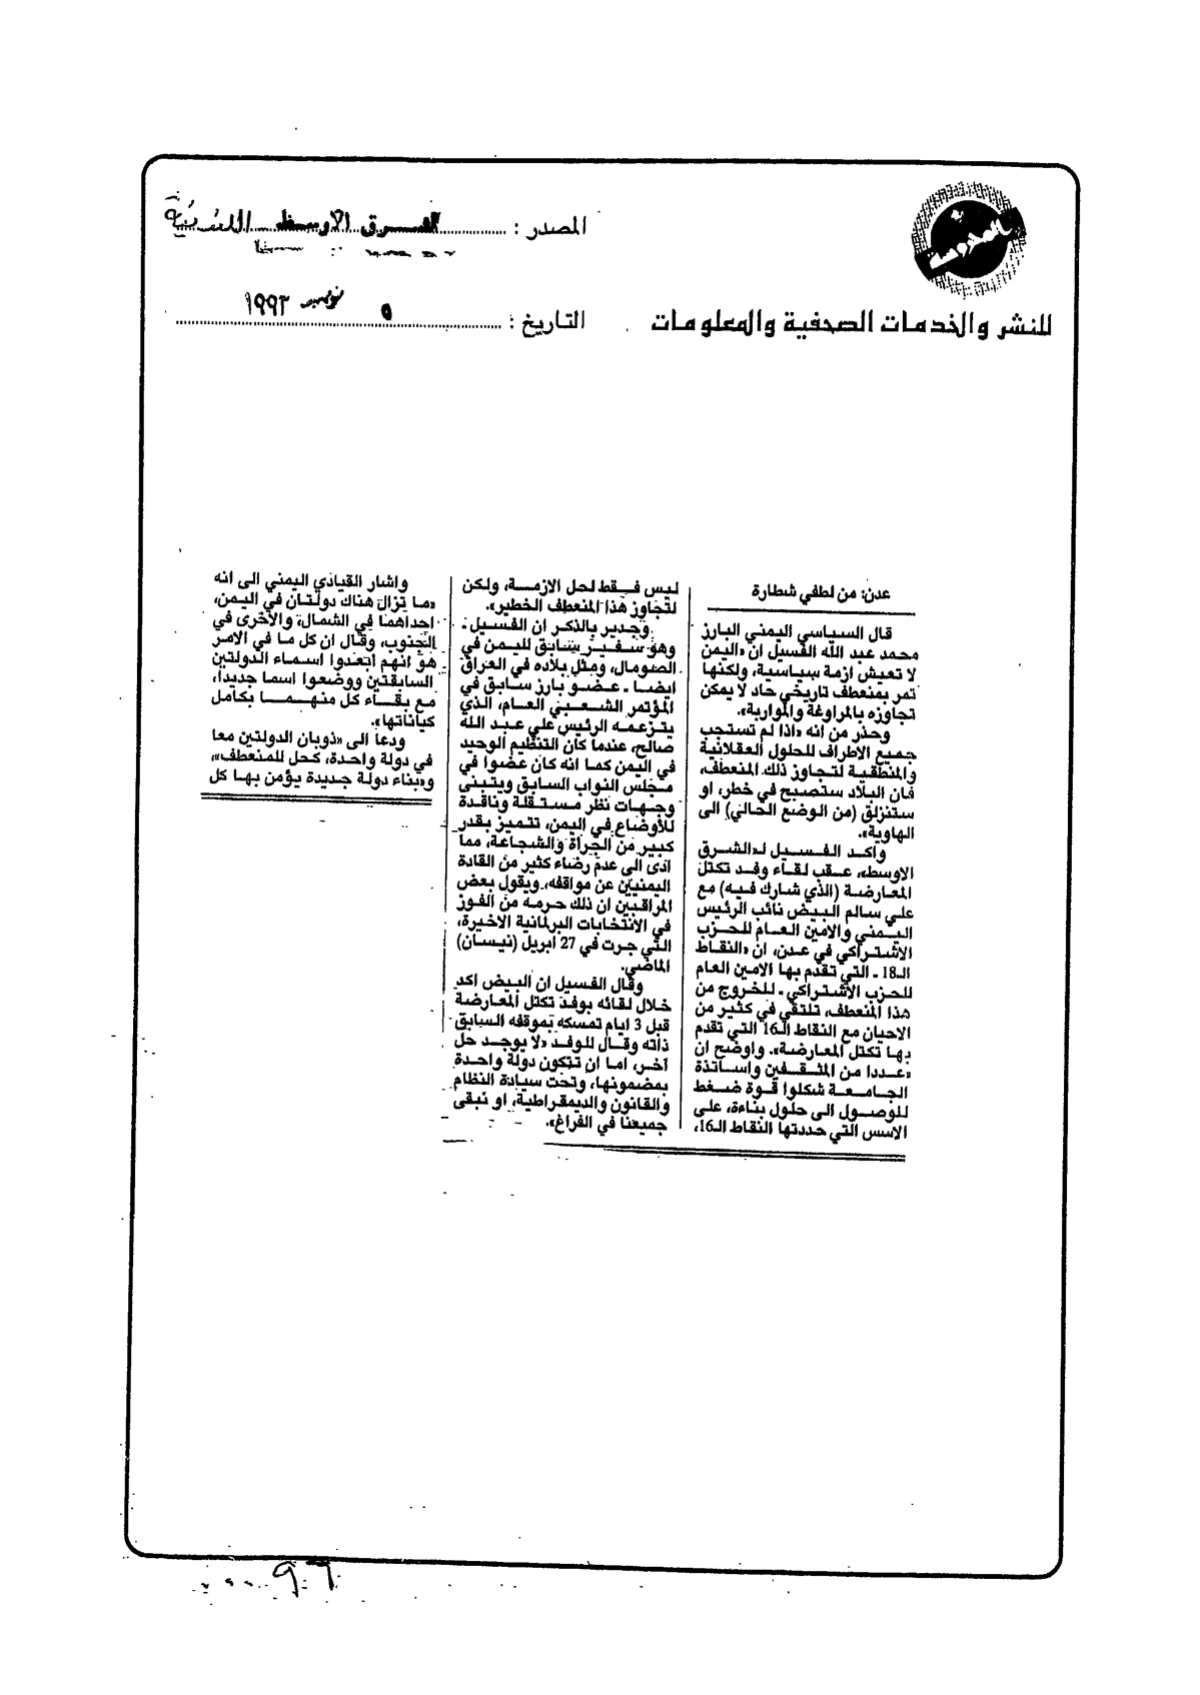 المصدر : الشرق الاوسط اللندنية
التاريخ : ٥ نوفمبر ١٩٩٣
للنشر والخدمات الصحفية والمعلومات
عدن: من لطفي شطارة
قال السياسي اليمني البارز
محمد عبد الله الفسيل ان «اليمن
لا تعيش ازمة سياسية، ولكنها
تمر بمنعطف تاريخي حاد لا يمكن
تجاوزه بالمراوغة والمواربة».
وحذر من انه «اذا لم تستجب
جميع الاطراف للحلول العقلانية
والمنطقية لتجاوز ذلك المنعطف،
فان البلاد ستصبح في خطر، او
ستنزلق (من الوضع الحالي) الى
الهاوية».
واكد الفسيل لـ«الشرق
الاوسط»، عقب لقاء وفد تكتل
المعارضة (الذي شارك فيه) مع
علي سالم البيض نائب الرئيس
اليمني والامين العام للحزب
الاشتراكي في عدن، ان «النقاط
الـ18 - التي تقدم بها الامين العام
للحزب الاشتراكي - للخروج من
هذا المنعطف، تلتقي في كثير من
الاحيان مع النقاط الـ16 التي تقدم
بها تكتل المعارضة». واوضح ان
«عددا من المثقفين واساتذة
الجامعة شكلوا قوة ضغط
للوصول الى حلول بناءة، على
الاسس التي حددتها النقاط الـ16،
ليس فقط لحل الازمة، ولكن
لتجاوز هذا المنعطف الخطير».
وجدير بالذكر ان الفسيل -
وهو سفير سابق لليمن في
الصومال، ومثل بلاده في العراق
ايضا - عضو بارز سابق في
المؤتمر الشعبي العام، الذي
يتزعمه الرئيس علي عبد الله
صالح، عندما كان التنظيم الوحيد
في اليمن كما انه كان عضوا في
مجلس النواب السابق ويتبنى
وجهات نظر مستقلة وناقدة
للأوضاع في اليمن، تتميز بقدر
كبير من الجرأة والشجاعة، مما
ادى الى عدم رضاء كثير من القادة
اليمنيين عن مواقفه، ويقول بعض
المراقبين ان ذلك حرمه من الفوز
في الانتخابات البرلمانية الاخيرة،
التي جرت في 27 ابريل (نيسان)
الماضي.
وقال الفسيل ان البيض اكد
خلال لقائه بوفد تكتل المعارضة
قبل 3 ايام تمسكه بموقفه السابق
ذاته وقال للوفد «لا يوجد حل
آخر، اما ان تتكون دولة واحدة
بمضمونها، وتحت سيادة النظام
والقانون والديمقراطية، او نبقى
جميعنا في الفراغ».
واشار القيادي اليمني الى انه
«ما تزال هناك دولتان في اليمن،
احداهما في الشمال، والاخرى في
الجنوب، وقال ان كل ما في الامر
هو انهم ابعدوا اسماء الدولتين
السابقتين ووضعوا اسما جديدا،
مع بقاء كل منهما بكامل
كياناتها».
ودعا الى «ذوبان الدولتين معا
في دولة واحدة، كحل للمنعطف»،
و«بناء دولة جديدة يؤمن بها كل